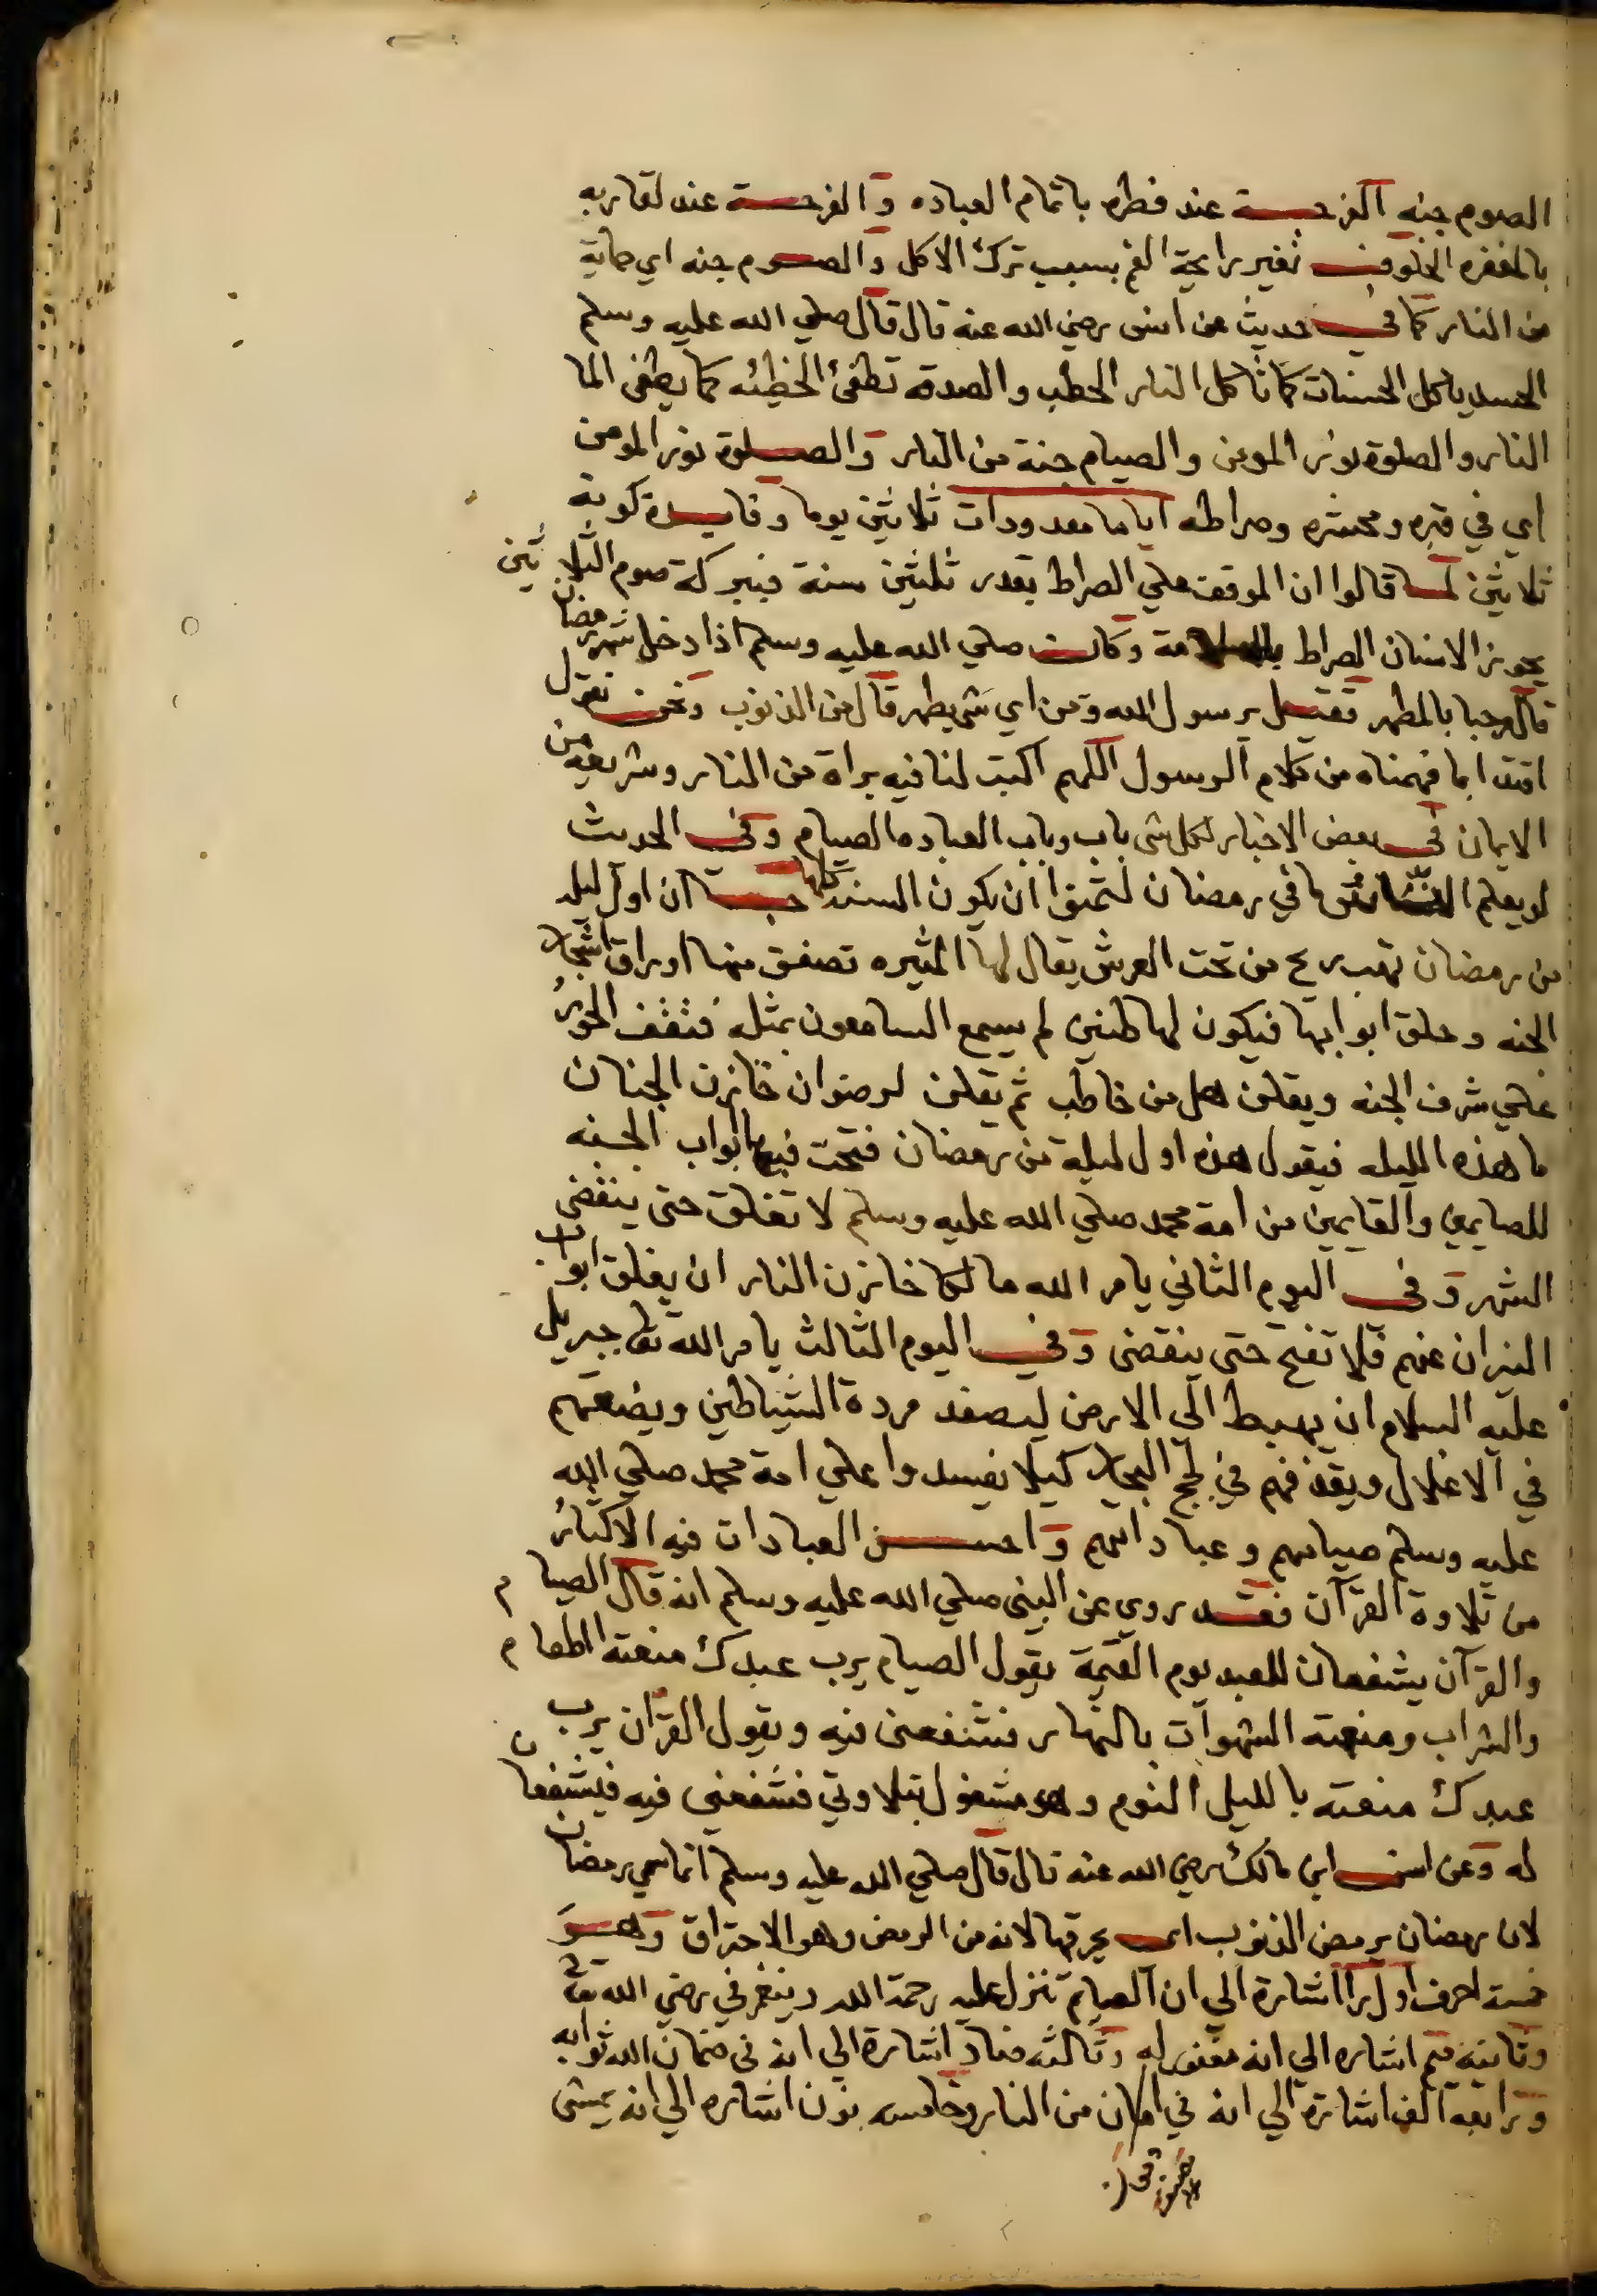 الصوم جنه الفرحــة عند فطره باتمام العباده والفرحــة عند لقا ربه
بالمغفره الخلوف تغير رايحة الفم بسبب ترك الاكل والصوم جنه اي حماية
من النار كما في حديث عن انس رضي الله عنه قال قال صلي الله عليه وسلم
الحسد ياكل الحسنات كما تاكل النار الحطب والصدقه تطفئ الخطيئه كما يطفي الما
النار والصلوة نور المومن والصيام جنة من النار والصلوة نور المومن
اي في قبره ومحشره وصراطه اياما معدودات ثلاثين يوما وفايدة كونه
ثلاثين لما قالوا ان الموقف علي الصراط بقدر ثلثين سنة فببركة صوم الثلاثين
يجوز الانسان الصراط بالسلامة وكان صلي الله عليه وسلم اذا دخل شهر رمضان
قال مرحبا بالمطهر فقيل يرسول الله ومن اي شي يطهر قال من الذنوب ونحن نقول
اقتدا بما فهمناه من كلام الرسول اللهم اكتب لنا فيه براة من النار وشريعه من
الايمان في بعض الاخبار لكل شي باب وباب العباده الصيام وفي الحديث
لو يعلم الناس ما في رمضان لتمنوا ان يكون السنه كلها ان اول ليله
من رمضان تهب ريح من تحت العرش يقال لها المثيره تصفق منها اوراق اشجار
الجنه وحلق ابوابها فيكون لها طنين لم يسمع السامعون بمثله فتقف الحور
علي شرف الجنه ويقلن هل من خاطب ثم يقلن لرضوان خازن الجنان
ما هذه الليله فيقول هذه اول ليلة من رمضان فتحت فيها ابواب الجنه
للصايمين والقايمين من امة محمد صلي الله عليه وسلم لا تغلق حتى ينقضي
الشهر وفي اليوم الثاني يامر الله مالكا خازن النار ان يغلق ابواب
النيران عنهم فلا تفتح حتى ينقضي وفي اليوم الثالث يامر الله تعا جبريل
عليه السلام ان يهبط الى الارض ليصفد مردة الشياطين ويضعهم
في الاغلال ويقذفهم في لجج البحار كيلا يفسدوا علي امة محمد صلي الله
عليه وسلم صيامهم وعباداتهم واحسن العبادات فيه الاكثار
من تلاوة القرآن فقد روي عن النبي صلي الله عليه وسلم انه قال الصيام
والقرآن يشفعان للعبد يوم القيمة يقول الصيام يرب عبدك منعته الطعام
والشراب ومنعته الشهوات بالنهار فشفعني فيه ويقول القرآن يرب
عبدك منعته بالليل النوم وهو مشغول بتلاوتي فشفعني فيه فيشفعان
له وعن انس ابن مالك رضي الله عنه قال قال صلي الله عليه وسلم انما سمي رمضان
لان رمضان يرمض الذنوب اي يحرقها لانه من الرمض وهو الاحتراق وهو
خمسة احرف اوله را اشارة الي ان الصيام تنزل عليه رحمة الله وينغمر في رضي الله تعا
وثانيه ميم اشاره الي انه مغفور له وثالثه ضاد اشارة الي انه في ضمان الله ثوابه
ورابعه الف اشارة الي انه في امان من النار وخامسه نون اشاره الي انه يمشي